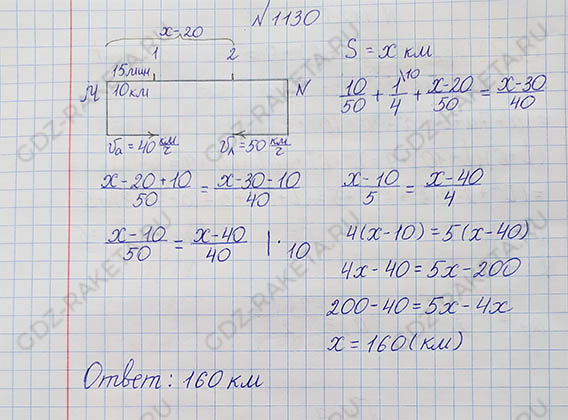 N 1130
x-20
1 2
15мин
10км
M N
Vа = 40 км/ч Vл = 50 км/ч
S = x км
10/50 + 1/4 \10 + x-20/50 = x-30/40
x-20+10/50 = x-30-10/40
x-10/50 = x-40/40 | · 10
x-10/5 = x-40/4
4(x-10) = 5(x-40)
4x-40 = 5x-200
200-40 = 5x-4x
x = 160(км)
Ответ: 160 км
GDZ-RAKETA.RU